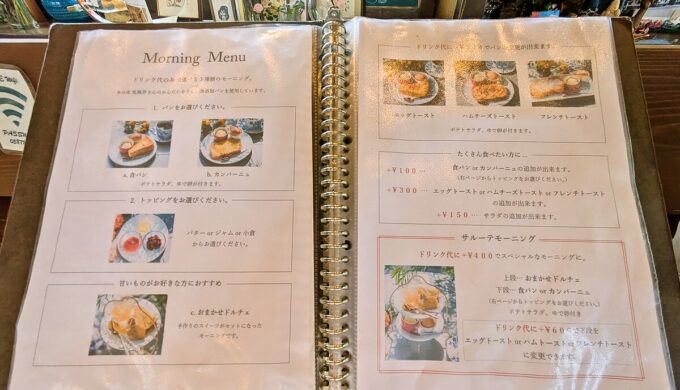 Morning Menu
1. パンをお選びください。
a. 食パン
b. カンパーニュ
ポテトサラダ、ゆで卵が付きます。
2. トッピングをお選びください。
バター or ジャム or 小倉
からお選びください。
甘いものがお好きな方におすすめ
c. おまかせドルチェ
手作りのスイーツがセットになった
モーニングです。
エッグトースト
ハムチーズトースト
フレンチトースト
ポテトサラダ、ゆで卵が付きます。
たくさん食べたい方に…
+¥100… 食パン or カンパーニュの追加が出来ます。
(右ページからトッピングをお選びください。)
+¥300… エッグトースト or ハムチーズトースト or フレンチトースト
の追加が出来ます。
+¥150… サラダの追加が出来ます。
サルーテモーニング
ドリンク代に+¥400でスペシャルなモーニングに。
上段… おまかせドルチェ
下段… 食パン or カンパーニュ
(右ページからトッピングをお選びください。)
ポテトサラダ、ゆで卵
ドリンク代に+¥600で下段を
エッグトースト or ハムトースト or フレンチトースト
に変更できます。